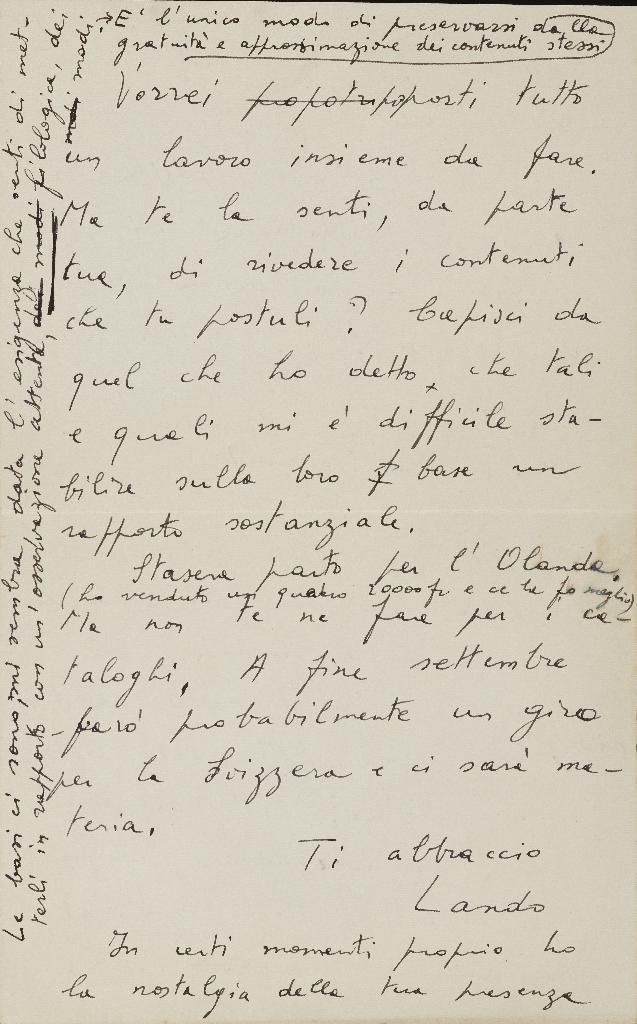 E' l'unico modo di preservarsi dalla
gratuità e approssimazione dei contenuti stessi
Vorrei proporti tutto
un lavoro insieme da fare.
Ma te la senti, da parte
tua, di rivedere i contenuti
che tu postuli? Capisci da
quel che ho detto, che tali
e quali mi é difficile sta-
bilire sulla loro base un
rapporto sostanziale.
Stasera parto per l'Olanda.
(ho venduto un quadro 20000 fr e ce la fo meglio)
Ma non te ne fare per i ca-
taloghi. A fine settembre
farò probabilmente un giro
per la Svizzera e ci sarà ma-
teria.
Ti abbraccio
Lando
In certi momenti proprio ho
la nostalgia della tua presenza
Le basi ci sono, mi sembra, data l'esigenza che senti di met-
terli in rapporto con un'osservazione attenta, filologica, dei
modi.